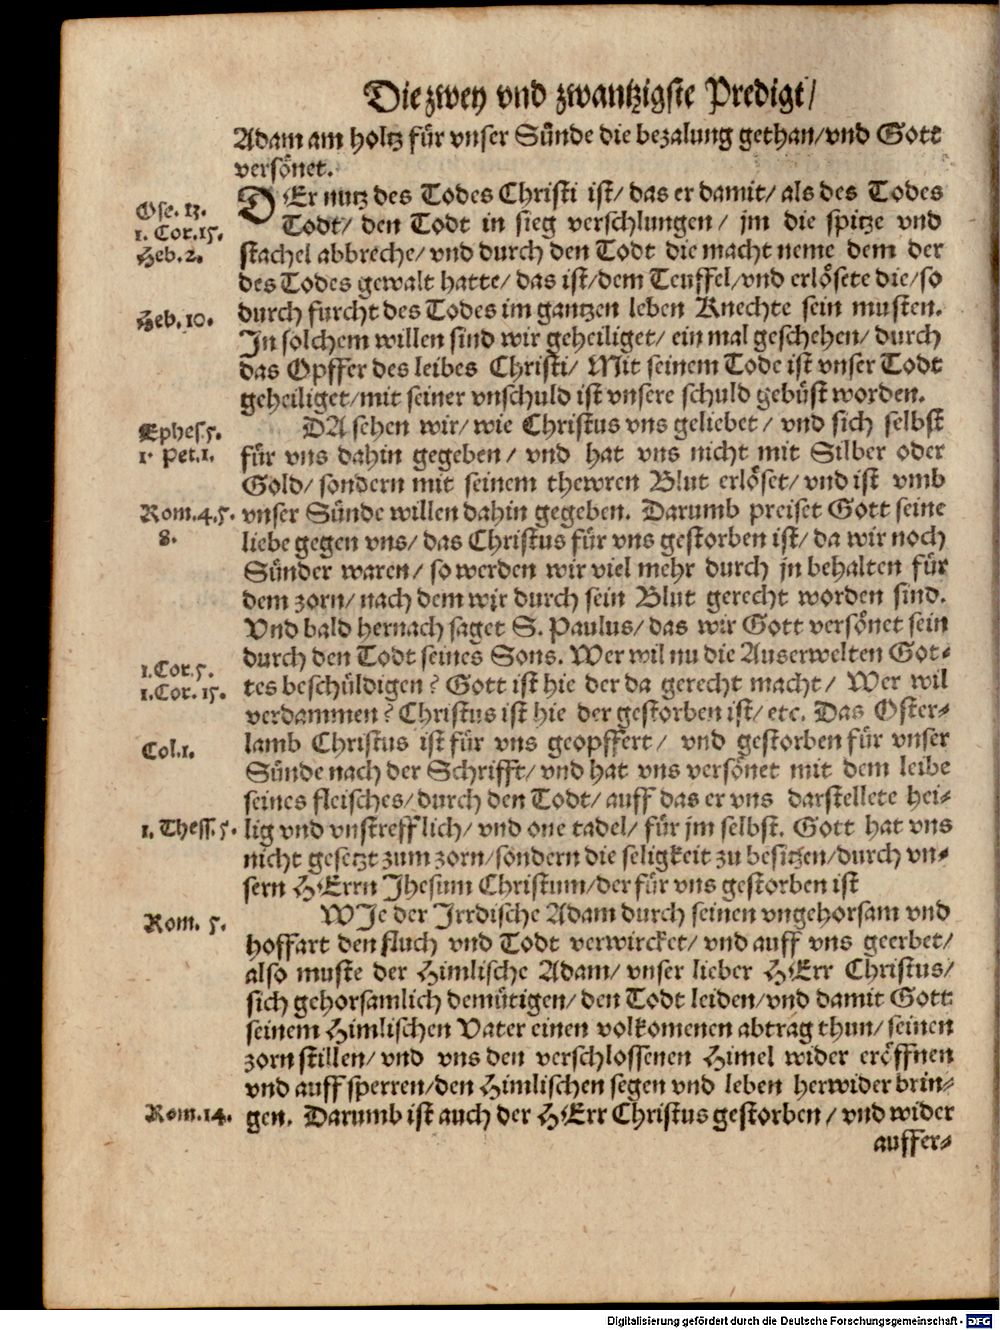 Die zwey vnd zwantzigste Predigt/
Adam am holtz für vnser Sünde die bezalung gethan/vnd Gott
versönet.
Ose. 13.
DEr nutz des Todes Christi ist/ das er damit/ als des Todes
1. Cor. 15.
Todt/ den Todt in sieg verschlungen/ jm die spitze vnd
Heb. 2.
stachel abbreche/ vnd durch den Todt die macht neme dem der
des Todes gewalt hatte/ das ist/dem Teuffel/vnd erlösete die/so
Heb. 10.
durch furcht des Todes im gantzen leben Knechte sein musten.
In solchem willen sind wir geheiliget/ ein mal geschehen/ durch
das Opffer des leibes Christi/ Mit seinem Tode ist vnser Todt
geheiliget/mit seiner vnschuld ist vnsere schuld gebüst worden.
Ephes. 5.
DA sehen wir/ wie Christus vns geliebet/ vnd sich selbst
1. Pet. 1.
für vns dahin gegeben/ vnd hat vns nicht mit Silber oder
Gold/ sondern mit seinem thewren Blut erlöset/ vnd ist vmb
Rom. 4. 5.
vnser Sünde willen dahin gegeben. Darumb preiset Gott seine
8.
liebe gegen vns/ das Christus für vns gestorben ist/ da wir noch
Sünder waren/ so werden wir viel mehr durch jn behalten für
dem zorn/ nach dem wir durch sein Blut gerecht worden sind.
Vnd bald hernach saget S. Paulus/ das wir Gott versönet sein
durch den Todt seines Sons. Wer wil nu die Auserwelten Got-
1. Cor. 5.
1. Cor. 15.
tes beschüldigen? Gott ist hie der da gerecht macht/ Wer wil
verdammen? Christus ist hie der gestorben ist/ etc. Das Oster-
Col. 1.
lamb Christus ist für vns geopffert/ vnd gestorben für vnser
Sünde nach der Schrifft/ vnd hat vns versönet mit dem leibe
seines fleisches/ durch den Todt/ auff das er vns darstellete hei-
1. Thess. 5.
lig vnd vnstrefflich/ vnd one tadel/ für jm selbst. Gott hat vns
nicht gesetzt zum zorn/sondern die seligkeit zu besitzen/durch vn-
sern HErrn Jhesum Christum/der für vns gestorben ist
Rom. 5.
WJe der Jrrdische Adam durch seinen vngehorsam vnd
hoffart den fluch vnd Todt verwircket/ vnd auff vns geerbet/
also muste der Himlische Adam/ vnser lieber HErr Christus/
sich gehorsamlich demütigen/ den Todt leiden/ vnd damit Gott
seinem Himlischen Vater einen volkomenen abtrag thun/ seinen
zorn stillen/ vnd vns den verschlossenen Himel wider eröffnen
vnd auff sperren/den Himlischen segen vnd leben herwider brin-
Rom. 14.
gen. Darumb ist auch der HErr Christus gestorben/ vnd wider
auffer-
Digitalisierung gefördert durch die Deutsche Forschungsgemeinschaft - DFG